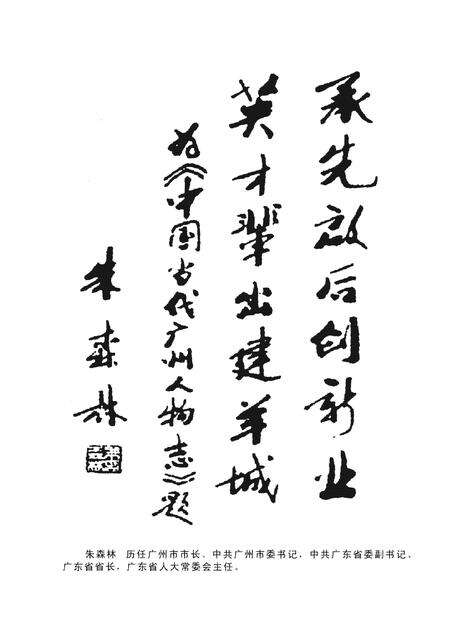 承先啟后创新业
英才辈出建羊城
为《中国当代广州人物志》题
朱森林
朱森林 历任广州市市长、中共广州市委书记，中共广东省委副书记、
广东省省长，广东省人大常委会主任。